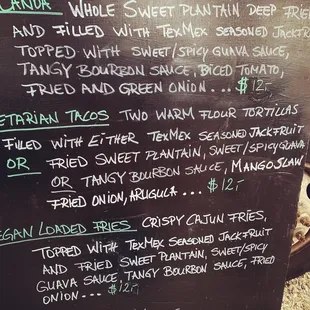 WHOLE SWEET PLANTAIN DEEP FRIE
AND FILLED WITH TEXMEX SEASONED JACKFR
TOPPED WITH SWEET/SPICY GUAVA SAUCE,
TANGY BOURBON SAUCE, DICED TOMATO,
FRIED AND GREEN ONION... $12,-
ETARIAN TACOS TWO WARM FLOUR TORTILLAS
FILLED WITH EITHER TEXMEX SEASONED JACKFRUIT
OR FRIED SWEET PLANTAIN, SWEET/SPICY GUAVA
OR TANGY BOURBON SAUCE, MANGO SLAW
FRIED ONION, ARUGULA... $12,-
EGAN LOADED FRIES CRISPY CAJUN FRIES,
TOPPED WITH TEXMEX SEASONED JACKFRUIT
AND FRIED SWEET PLANTAIN, SWEET/SPICY
GUAVA SAUCE, TANGY BOURBON SAUCE, FRIED
ONION... $12,-